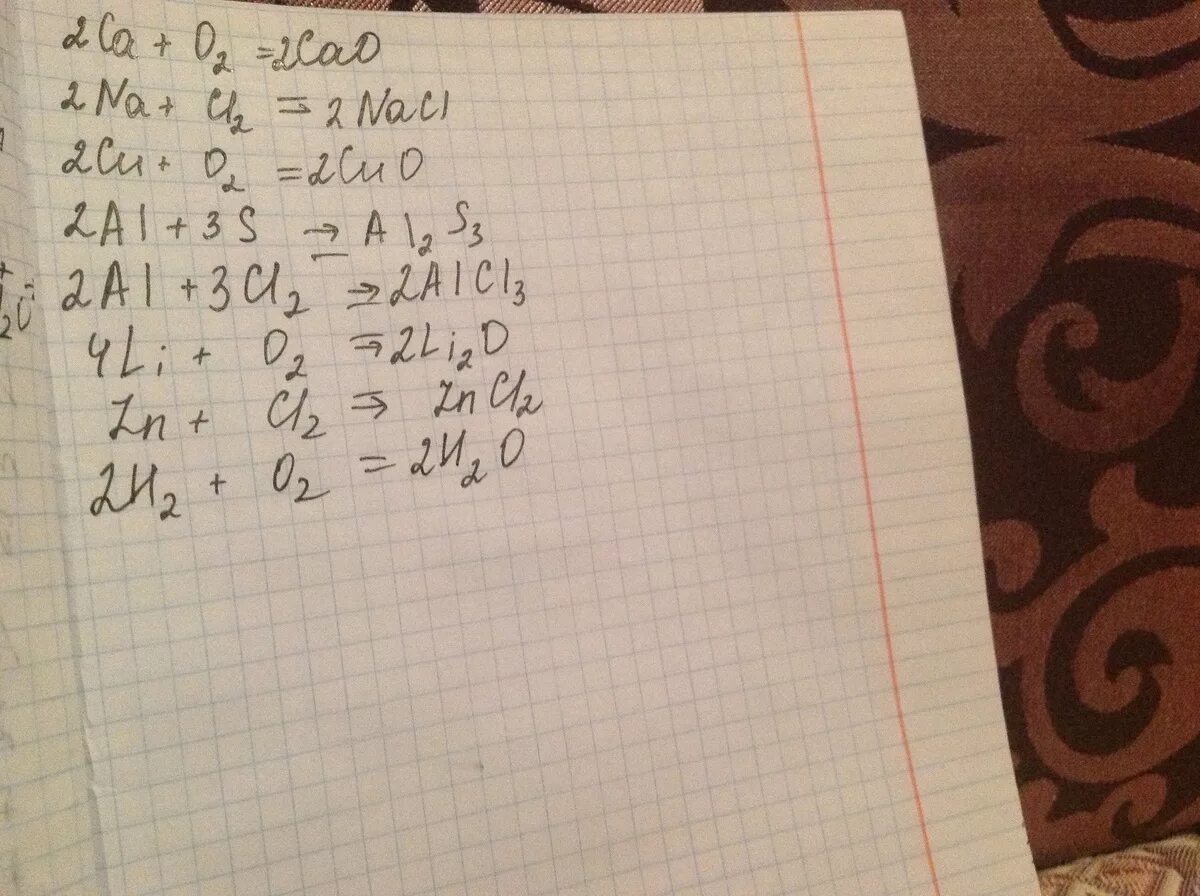 2Ca + O₂ = 2CaO
2Na + Cl₂ = 2NaCl
2Cu + O₂ = 2CuO
2Al + 3S → Al₂S₃
2Al + 3Cl₂ → 2AlCl₃
4Li + O₂ → 2Li₂O
Zn + Cl₂ → ZnCl₂
2H₂ + O₂ = 2H₂O